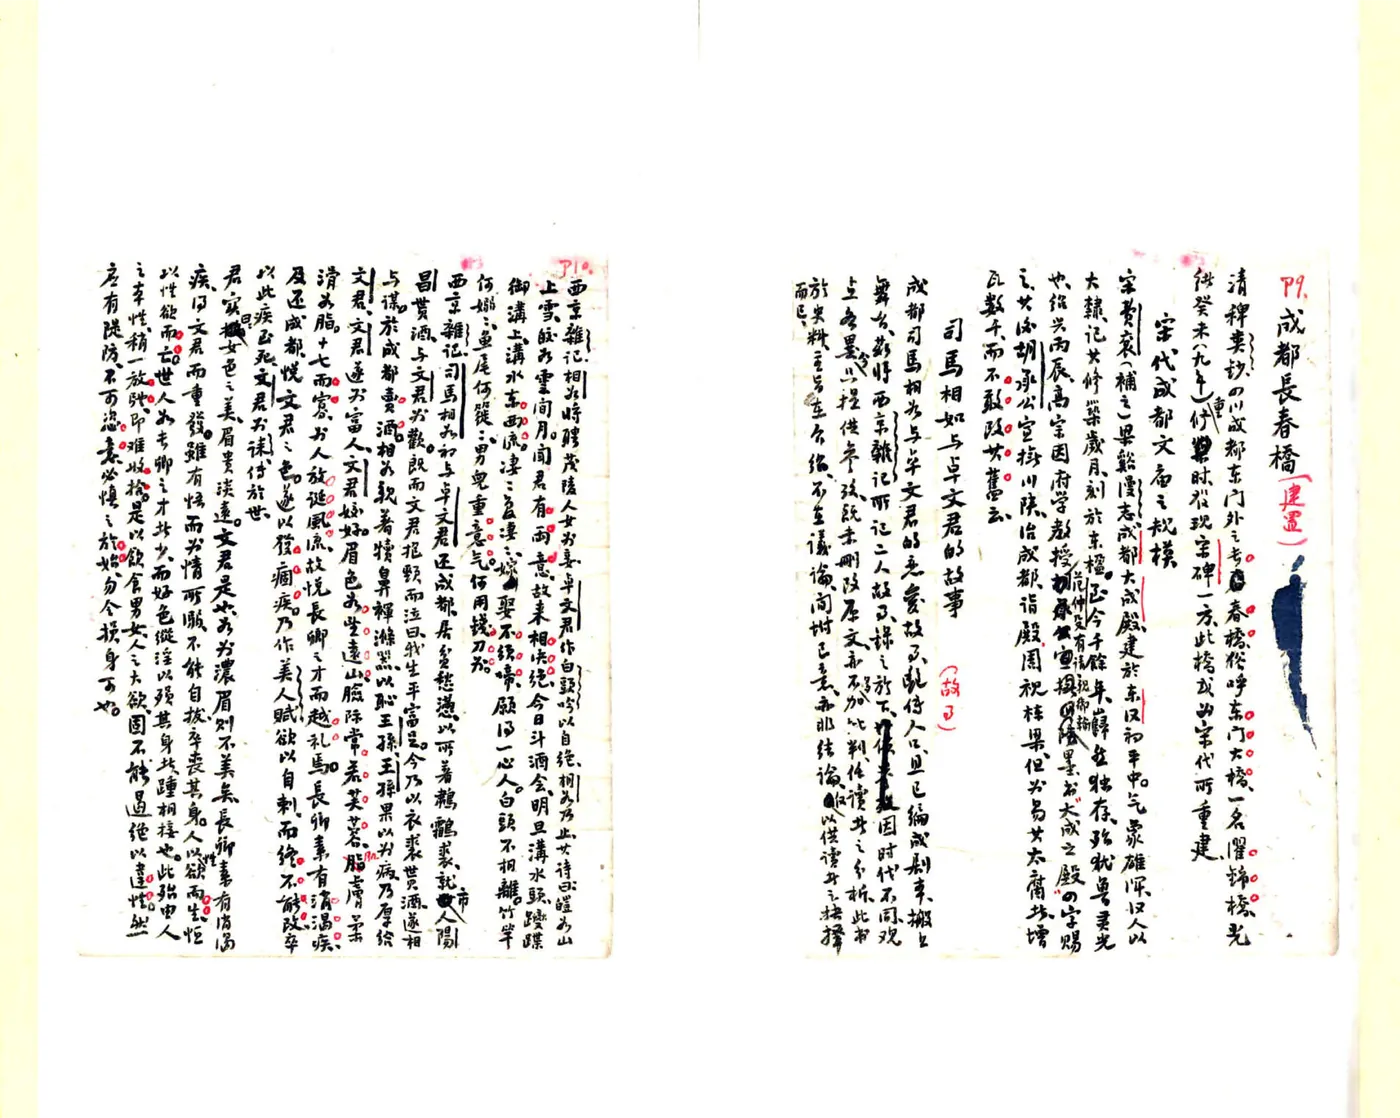 P9.
成都長春橋(建置)
清稗类鈔の川成都东门外之長春橋俗呼东门大橋、一名濯錦橋、光
緒癸未(九年)重修時發現宋碑一方、此橋或为宋代所重建、
宋代成都文庙之規模
宋費袞(補之)梁谿漫志成都大成殿建於东汉初平中、气象雄浑、汉人以
大隸記其修築歲月、刻於东楹。至今千餘年、巋然独存、殆犹魯灵光
也、紹兴丙辰、高宗因府学教授范仲殳有請親御翰墨书“大成之殿”の字賜
之、其后胡承公宣撫川陝、治成都、詣殿周視栋梁、但为易其太腐者、增
瓦数千、而不敢改其舊云、
司馬相如与卓文君的故事 (故事)
成都司馬相如与卓文君的恋爱故事、甄侍人口、且已編成剧本、搬上
舞台、茲將西京雜記所記二人故事、錄之於下、因时代不同、观
点各異、只提供参攷、既未刪改原文、亦不加以批判、任讀者之分析、此书
於史料主旨在介紹、不在議論、间附己意、亦非结論、仅以供读者之抉擇
而已、
P10.
西京雜記相如將聘茂陵人女为妾、卓文君作白头吟以自绝、相如乃止、其诗曰、皚如山
上雪、皎如雲间月、闻君有两意、故来相决绝、今日斗酒会、明旦溝水頭、躞蹀
御溝上、溝水东西流、凄凄复凄凄、嫁娶不须啼、願得一心人、白頭不相離。竹竿
何嫋嫋、魚尾何簁簁、男兒重意气、何用錢刀为。
西京雜記、司馬相如初与卓文君还成都、居贫愁懑、以所着鷫鸘裘、就市人陽
昌貰酒、与文君为歡、既而文君抱頸而泣曰、我生平富足、今乃以衣裘貰酒、遂相
与謀、於成都賣酒、相如親着犢鼻褌滌器、以恥王孫、王孫果以为病、乃厚给
文君、文君遂为富人、文君姣好、眉色如望遠山、臉际常若芙蓉、肌膚柔
滑如脂、十七而寡、为人放诞風流、故悅長卿之才而越礼焉、長卿素有消渴疾、
及还成都、悅文君之色、遂以發痼疾、乃作美人賦、欲以自刺、而终不能改、卒
以此疾至死、文君为誄、传於世、
君实曰、女色之美、眉贵淡遠、文君是也、如为濃眉則不美矣、長卿素有消渴
疾、得文君而重發。雖有悟而为情所溺、不能自拔、卒喪其身。人以性欲而生、恒
以性欲而亡。世人如長卿之才者少、而好色縱淫以殞其身者、踵相接也。此殆由人
之本性、稍一放肆、即难收拾。是以飲食男女、人之大欲、固不能過绝以違性、然
应有隄防、不可恣意、必慎之於始、勿令损身可也。